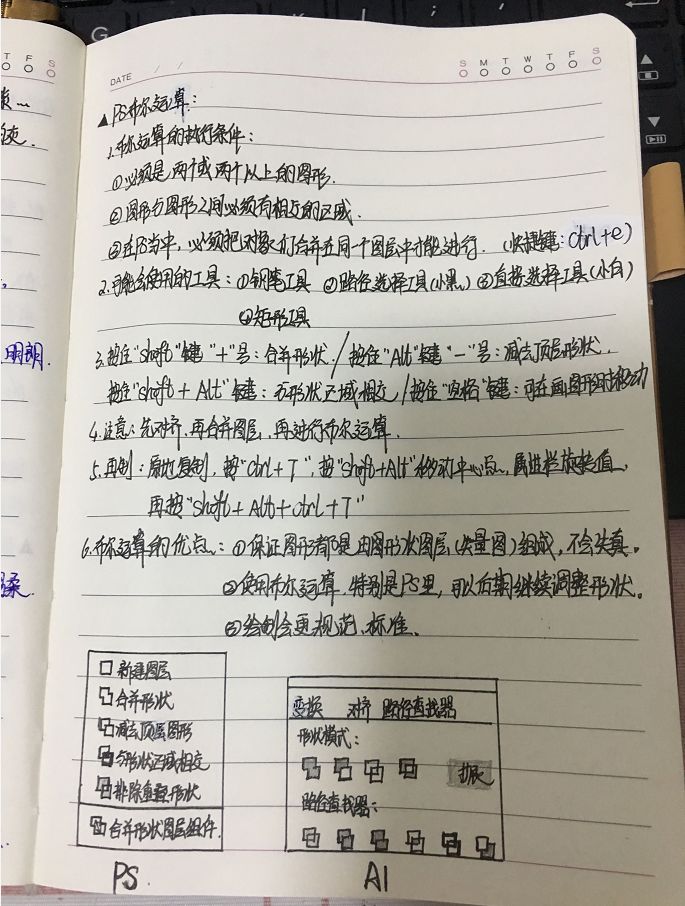 DATE / /
S M T W T F S
▲PS布尔运算:
1.布尔运算的执行条件:
①必须是两个或两个以上的图形.
②图形与图形之间必须有相交的区域.
③在PS当中,必须把对象们合并在同一个图层中才能进行.(快捷键:ctrl+e)
2.可能会使用的工具:①钢笔工具 ②路径选择工具(小黑) ③直接选择工具(小白)
④矩形工具
3.按住"shift"键"+"号:合并形状./按住"Alt"键"-"号:减去顶层形状.
按住"shift+Alt"键:与形状区域相交/按住"空格"键:可在画图形时移动
4.注意:先对齐,再合并图层,再进行布尔运算.
5.再制:原地复制,按"ctrl+T",按"shift+Alt"移动中心点,属性栏旋转值,
再按"shift+Alt+ctrl+T"
6.布尔运算的优点:①保证图形都是由图形状图层(矢量图)组成,不会失真.
②使用布尔运算,特别是PS里,可以后期继续调整形状.
③绘制会更规范、标准.
新建图层
合并形状
减去顶层图形
与形状区域相交
排除重叠形状
合并形状图层组件.
PS.
变换 对齐 路径查找器
形状模式:
扩展
路径查找器:
AI
T F S
明朗.